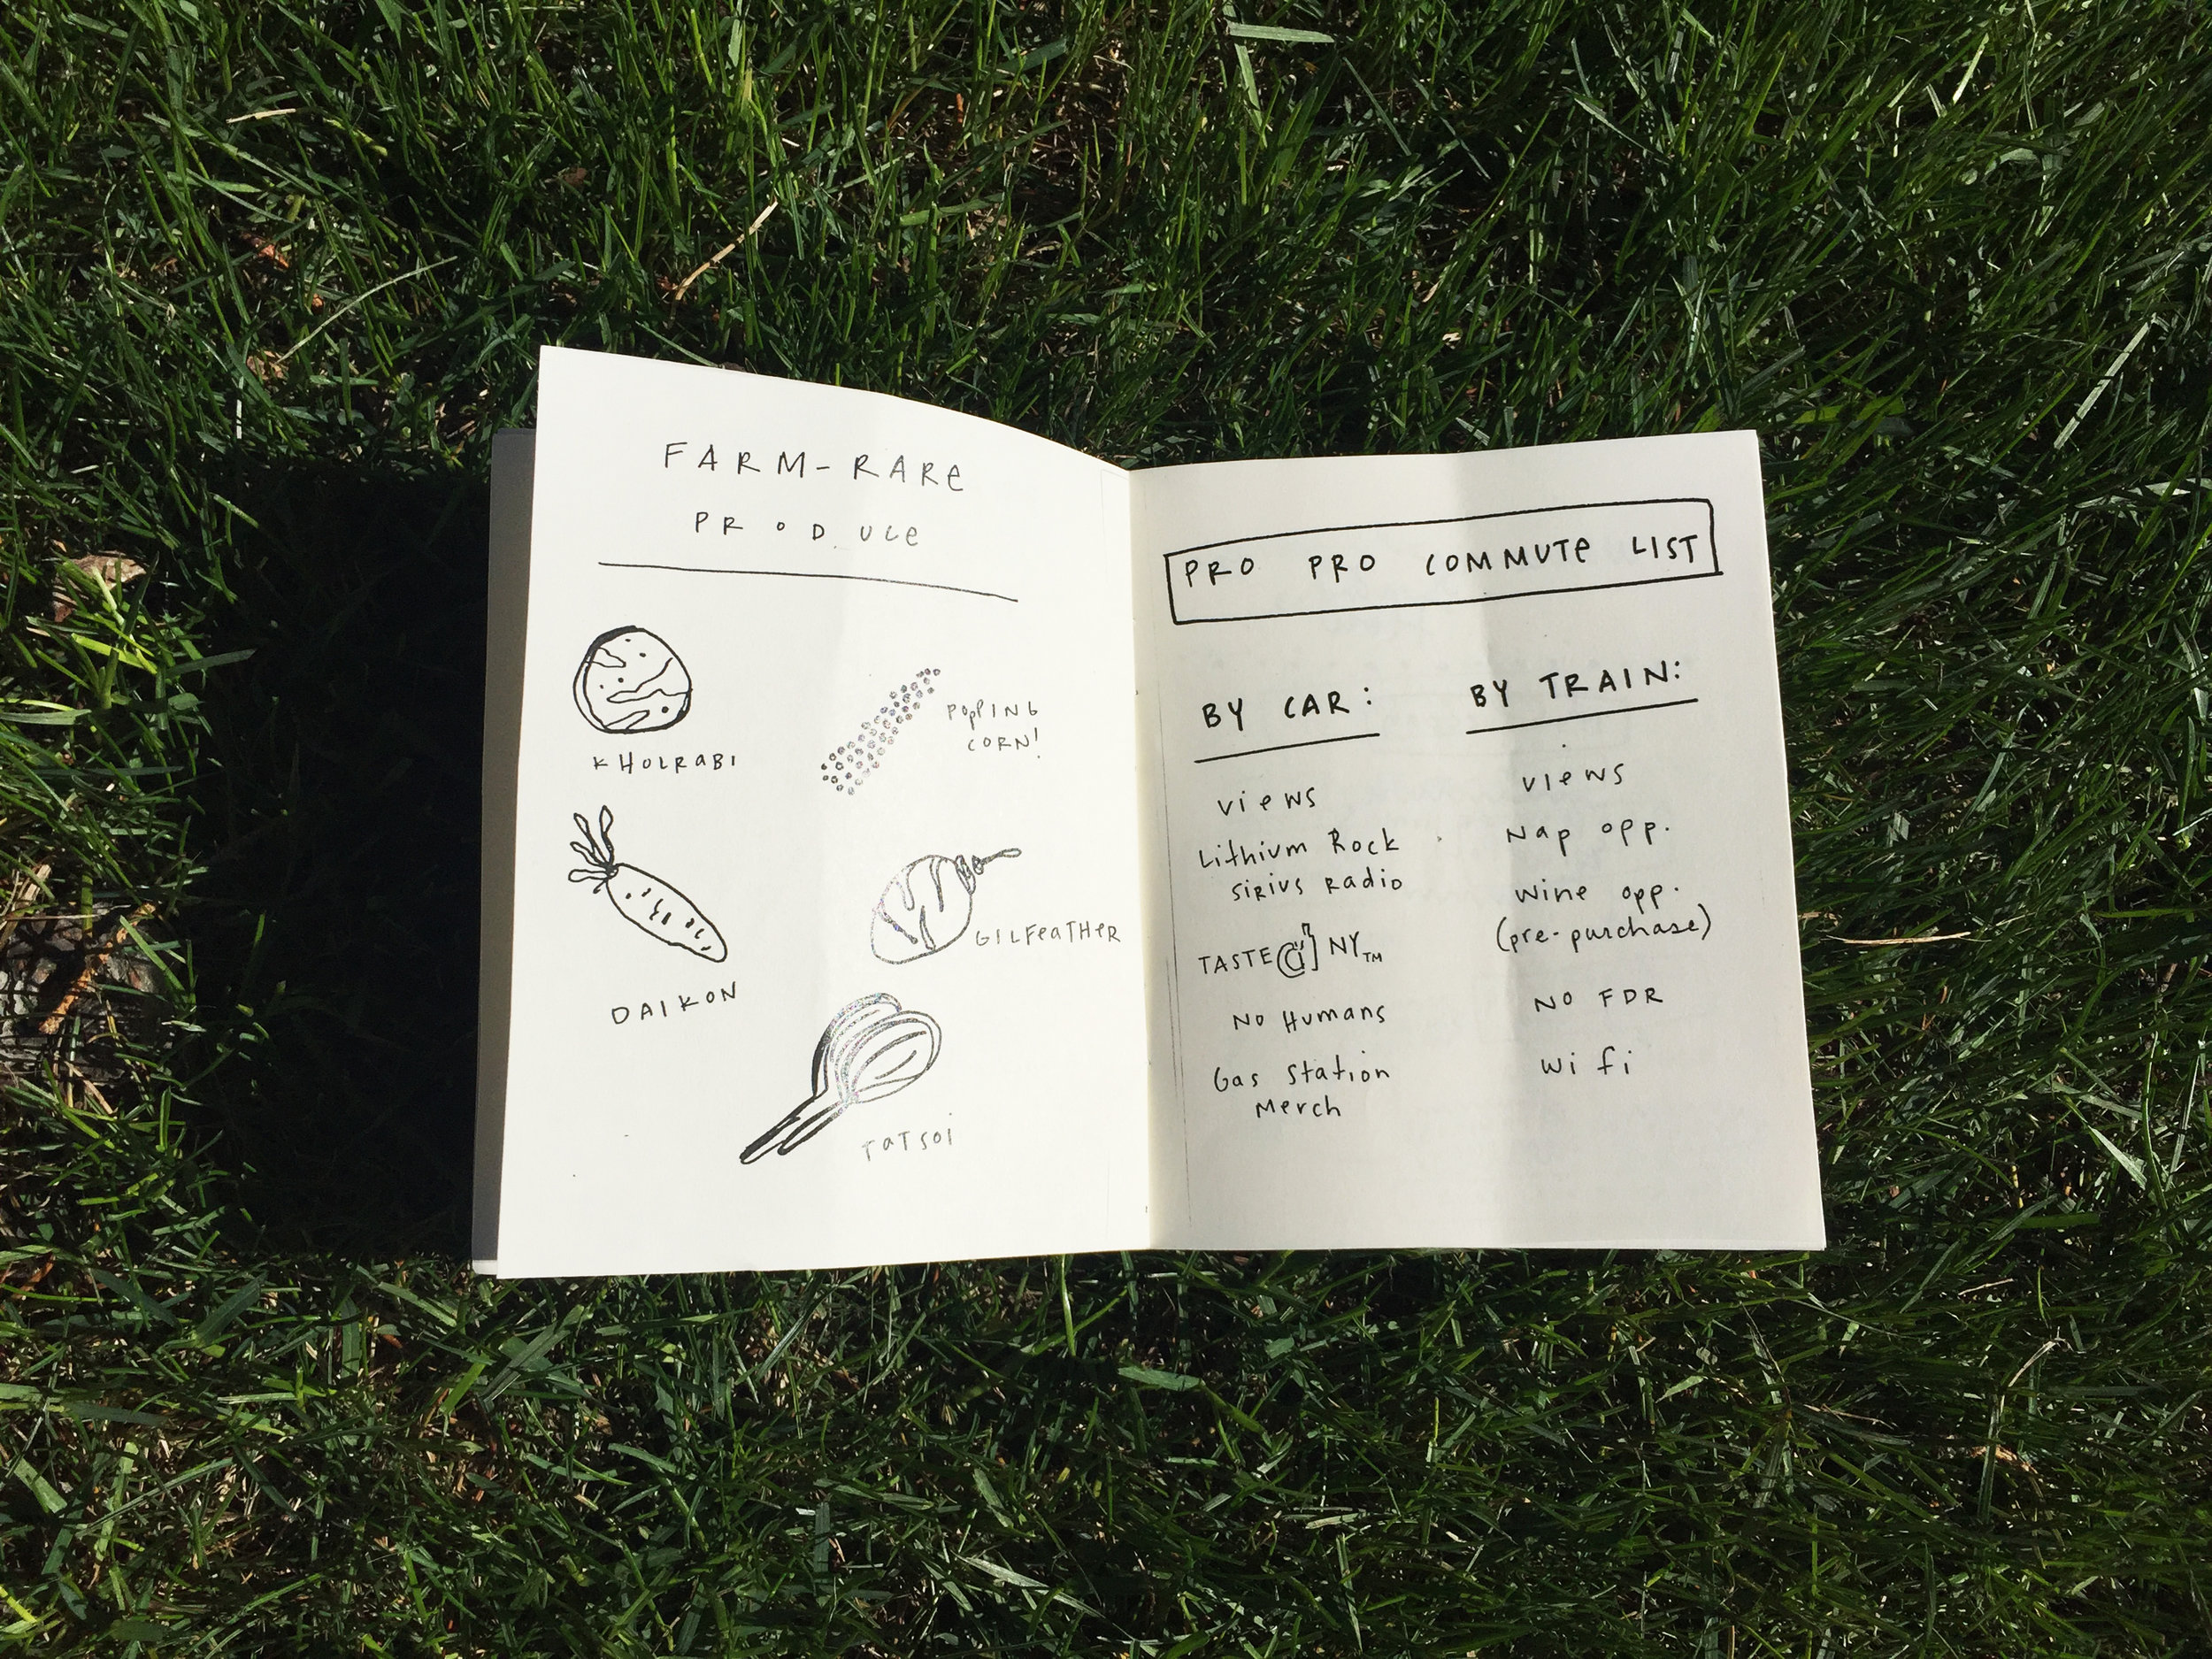 FARM-RARe
PRODUCe
KHOLRaBI
POPPING
CORN!
DAIKON
GILFeaTHeR
TaTSOI
PRO PRO COMMUTe LIST
BY CAR:
views
Lithium Rock
Sirius Radio
TASTE NY™
No Humans
Gas Station
Merch
BY TRAIN:
views
Nap opp.
Wine opp.
(pre-purchase)
No FDR
Wifi